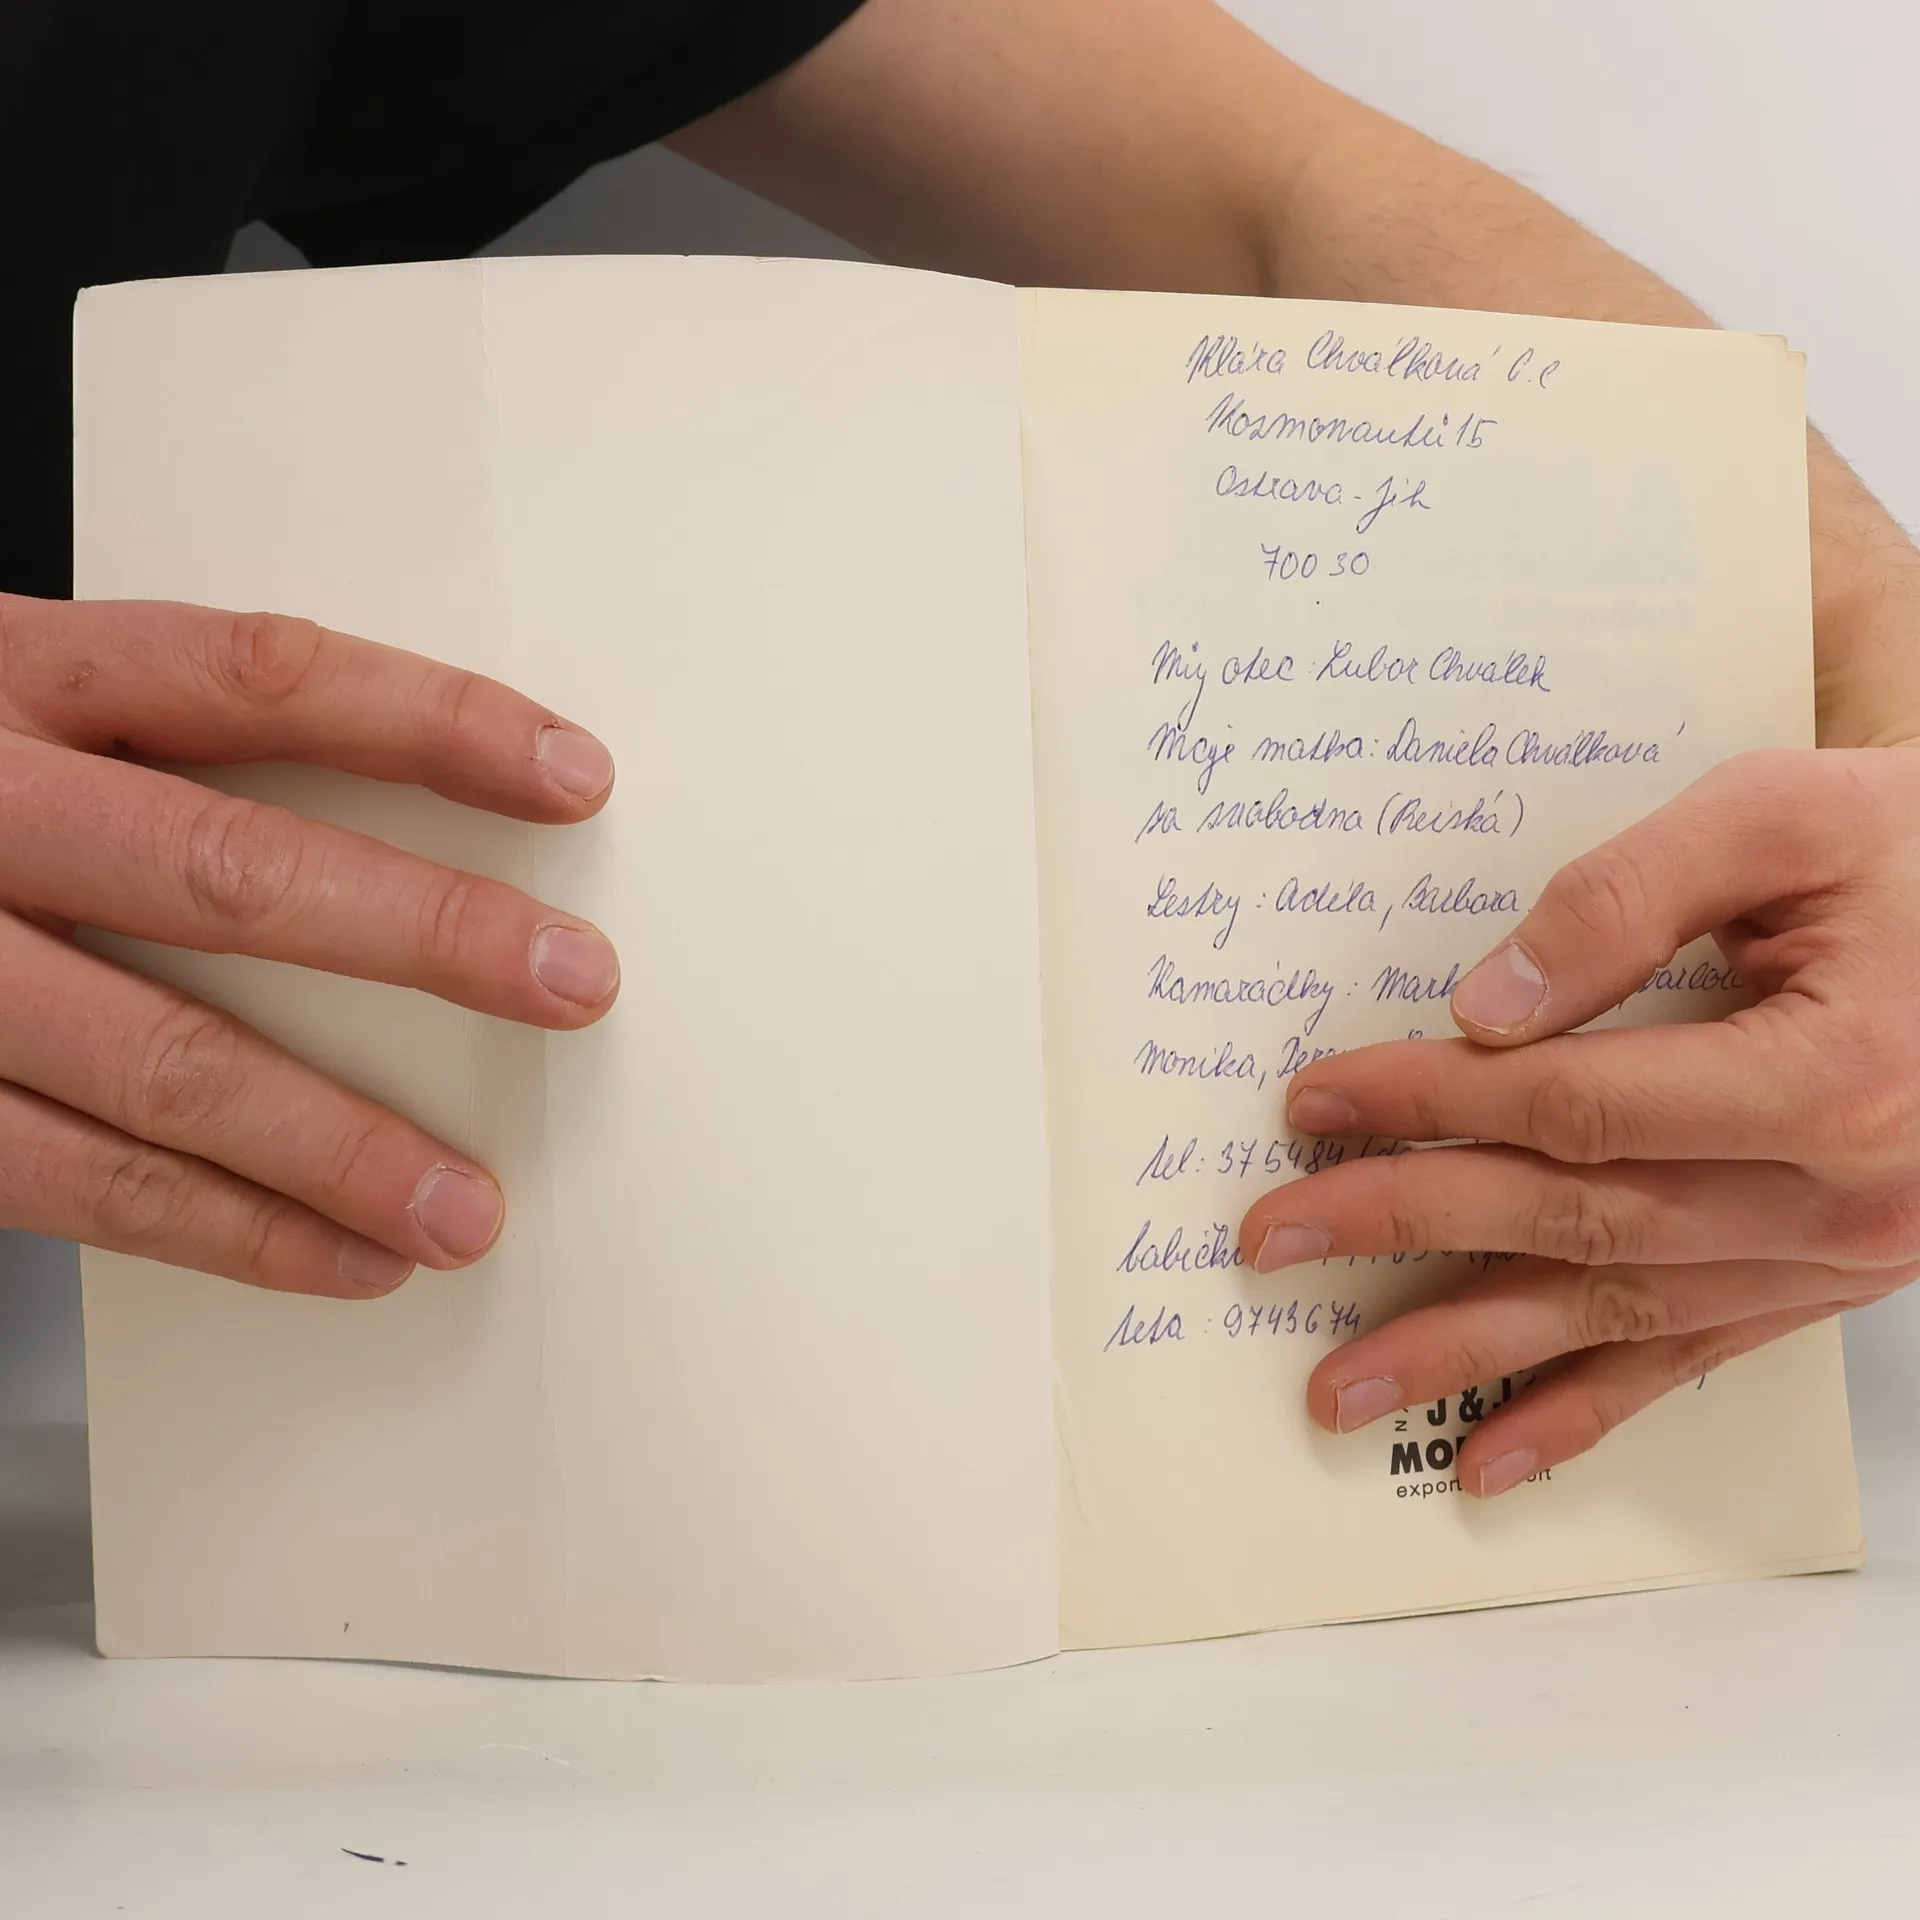 Klára Chválková 6.C
Kosmonautů 15
Ostrava - Jih
700 30
Můj otec : Lubor Chválek
Moje matka : Daniela Chválková
za svobodna (Reiská)
Sestry : Adéla, Barbora
Kamarádky :
Monika,
tel : 375484
teta : 9743674
J &
export